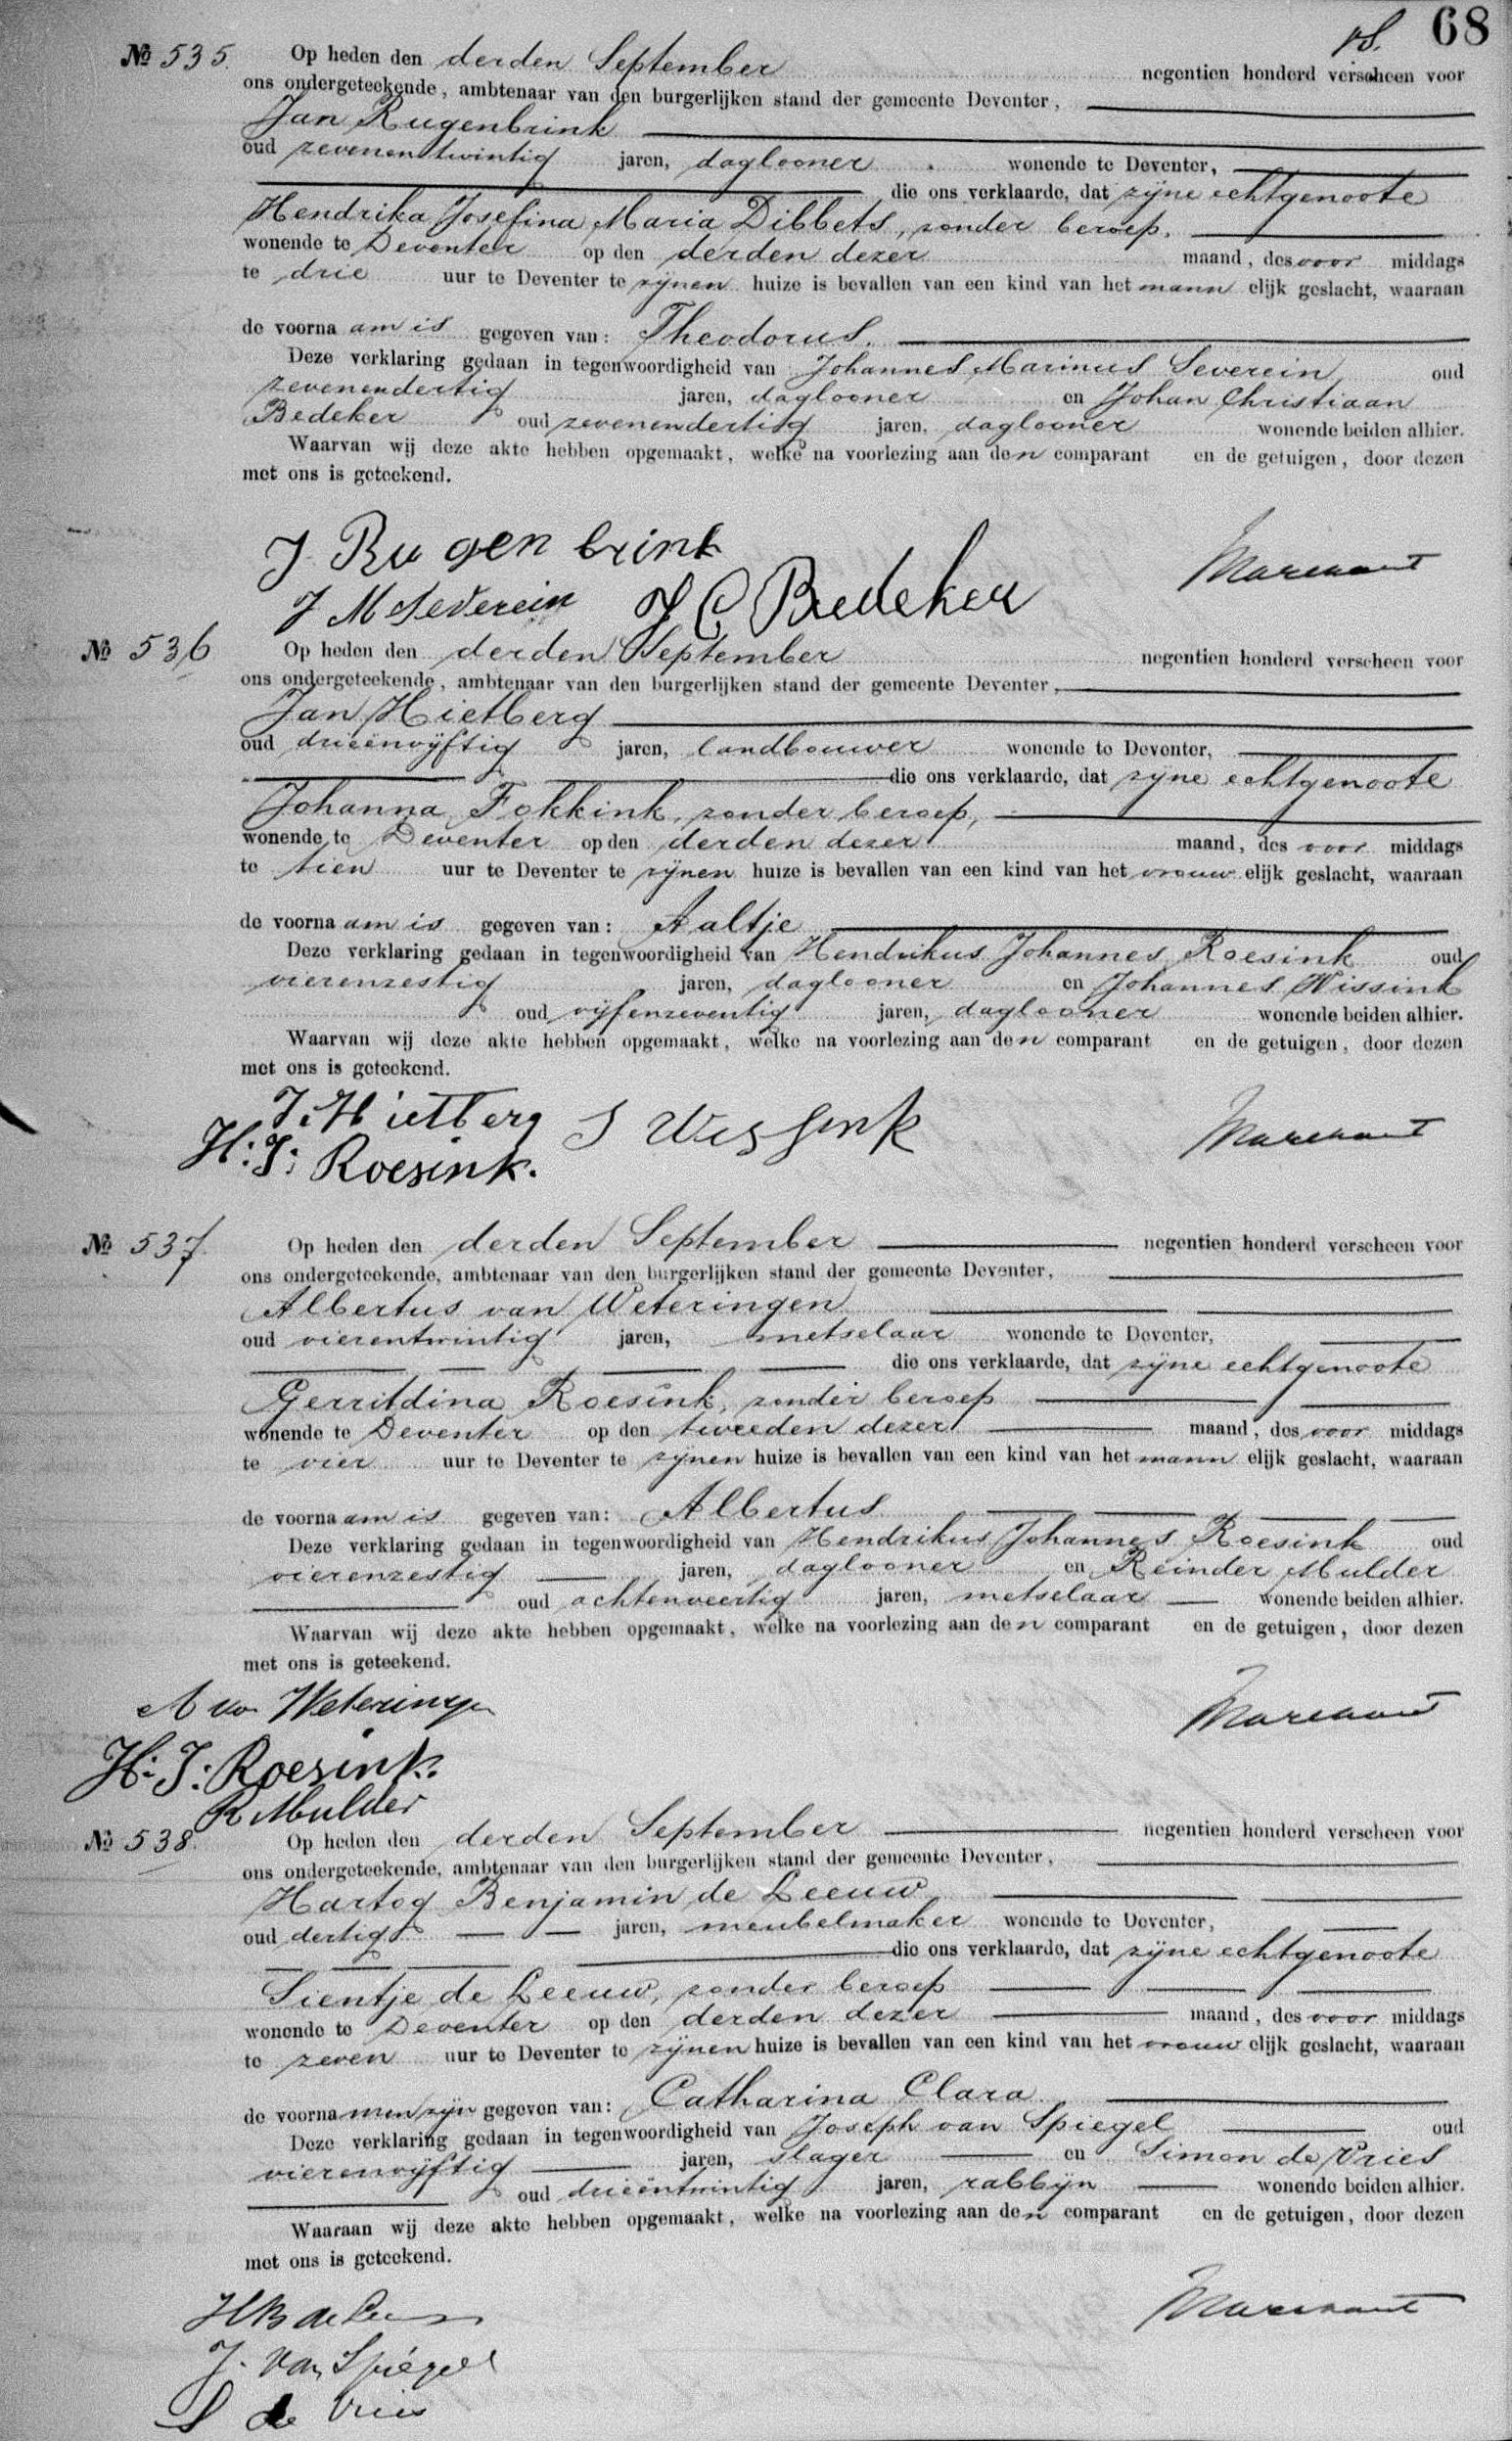 68
№ 535. Op heden den derden September negentien honderd verscheen voor
ons ondergeteekende, ambtenaar van den burgerlijken stand der gemeente Deventer,
Jan Rugenbrink
oud zevenentwintig jaren, daglooner wonende te Deventer,
die ons verklaarde, dat zijne echtgenoote
Hendrika Josefina Maria Dibbets, zonder beroep,
wonende te Deventer op den derden dezer maand, des voor middags
te drie uur te Deventer te zijnen huize is bevallen van een kind van het mann elijk geslacht, waaraan
de voorna am is gegeven van: Theodorus.
Deze verklaring gedaan in tegenwoordigheid van Johannes Marinus Severein, oud
zevenendertig jaren, daglooner en Johan Christiaan
Bedeker oud zevenendertig jaren, daglooner wonende beiden alhier.
Waarvan wij deze akte hebben opgemaakt, welke na voorlezing aan den comparant en de getuigen, door dezen
met ons is geteekend.
J Rugenbrink
Marchant
J M Severein J C Bedeker
№ 536 Op heden den derden September negentien honderd verscheen voor
ons ondergeteekende, ambtenaar van den burgerlijken stand der gemeente Deventer,
Jan Hietberg
oud drieënvijftig jaren, landbouwer wonende te Deventer,
die ons verklaarde, dat zijne echtgenoote
Johanna Fokkink, zonder beroep,
wonende te Deventer op den derden dezer maand, des voor middags
te tien uur te Deventer te zijnen huize is bevallen van een kind van het vrouw elijk geslacht, waaraan
de voorna am is gegeven van: Aaltje
Deze verklaring gedaan in tegenwoordigheid van Hendrikus Johannes Roesink oud
vierenzestig jaren, daglooner en Johannes Wissink
oud vijfenzeventig jaren, daglooner wonende beiden alhier.
Waarvan wij deze akte hebben opgemaakt, welke na voorlezing aan den comparant en de getuigen, door dezen
met ons is geteekend.
J. Hietberg J Wissink
Marchant
H: J: Roesink.
№ 537. Op heden den derden September negentien honderd verscheen voor
ons ondergeteekende, ambtenaar van den burgerlijken stand der gemeente Deventer,
Albertus van Weteringen
oud vierentwintig jaren, metselaar wonende te Deventer,
die ons verklaarde, dat zijne echtgenoote
Gerritdina Roesink, zonder beroep
wonende te Deventer op den tweeden dezer maand, des voor middags
te vier uur te Deventer te zijnen huize is bevallen van een kind van het mann elijk geslacht, waaraan
de voorna am is gegeven van: Albertus
Deze verklaring gedaan in tegenwoordigheid van Hendrikus Johannes Roesink oud
vierenzestig jaren, daglooner en Reinder Mulder
oud achtenveertig jaren, metselaar wonende beiden alhier.
Waarvan wij deze akte hebben opgemaakt, welke na voorlezing aan den comparant en de getuigen, door dezen
met ons is geteekend.
A van Weteringen
Marchant
H: J: Roesink.
R Mulder
№ 538. Op heden den derden September negentien honderd verscheen voor
ons ondergeteekende, ambtenaar van den burgerlijken stand der gemeente Deventer,
Hartog Benjamin de Leeuw
oud dertig jaren, meubelmaker wonende te Deventer,
die ons verklaarde, dat zijne echtgenoote
Sientje de Leeuw, zonder beroep
wonende te Deventer op den derden dezer maand, des voor middags
te zeven uur te Deventer te zijnen huize is bevallen van een kind van het vrouw elijk geslacht, waaraan
de voorna men zijn gegeven van: Catharina Clara
Deze verklaring gedaan in tegenwoordigheid van Joseph van Spiegel oud
vierenvijftig jaren, slager en Simon de Vries
oud drieëntwintig jaren, rabbijn wonende beiden alhier.
Waaraan wij deze akte hebben opgemaakt, welke na voorlezing aan den comparant en de getuigen, door dezen
met ons is geteekend.
H B de Leeuw
Marchant
J. van Spiegel
S de Vries